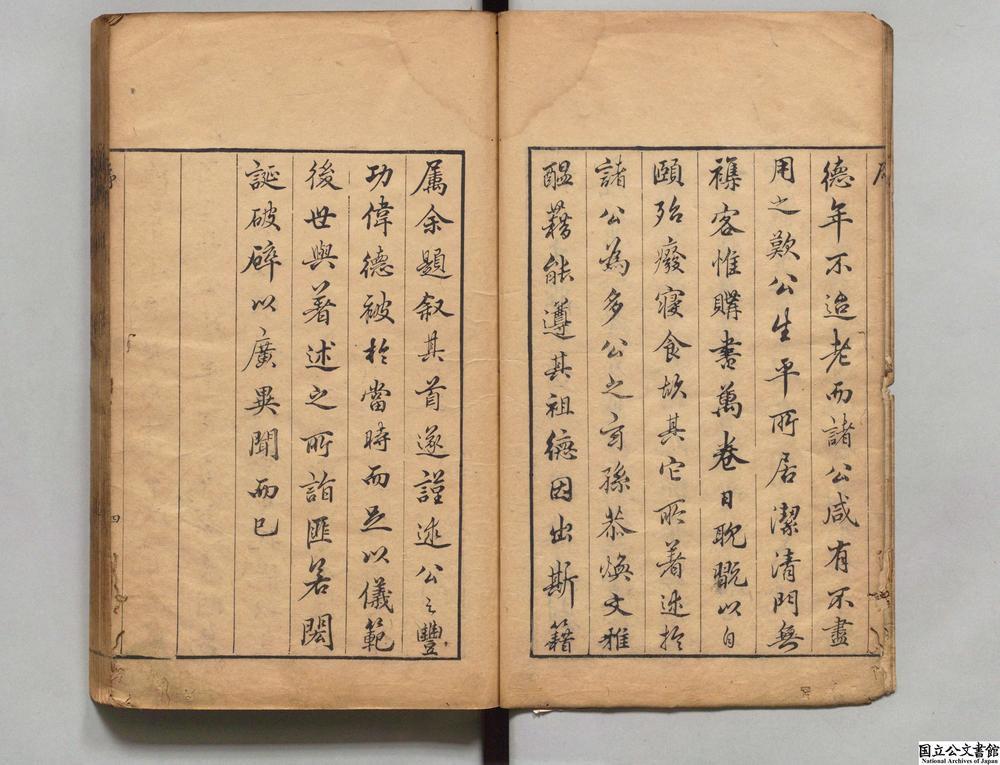 德年不迨老而諸公咸有不盡
用之歎公生平所居潔清門無
襍客惟購書萬卷日耽翫以自
頤殆癈寢食故其它所著述於
諸公為多公之
孫恭煥文雅
醖藉能遵其祖德因出斯籍
属余題叙其首遂謹述公之豐
功偉德被於當時而足以儀範
後世與著述之所詣匪若閎
誕破碎以廣異聞而已
四
国立公文書館
National Archives of Japan